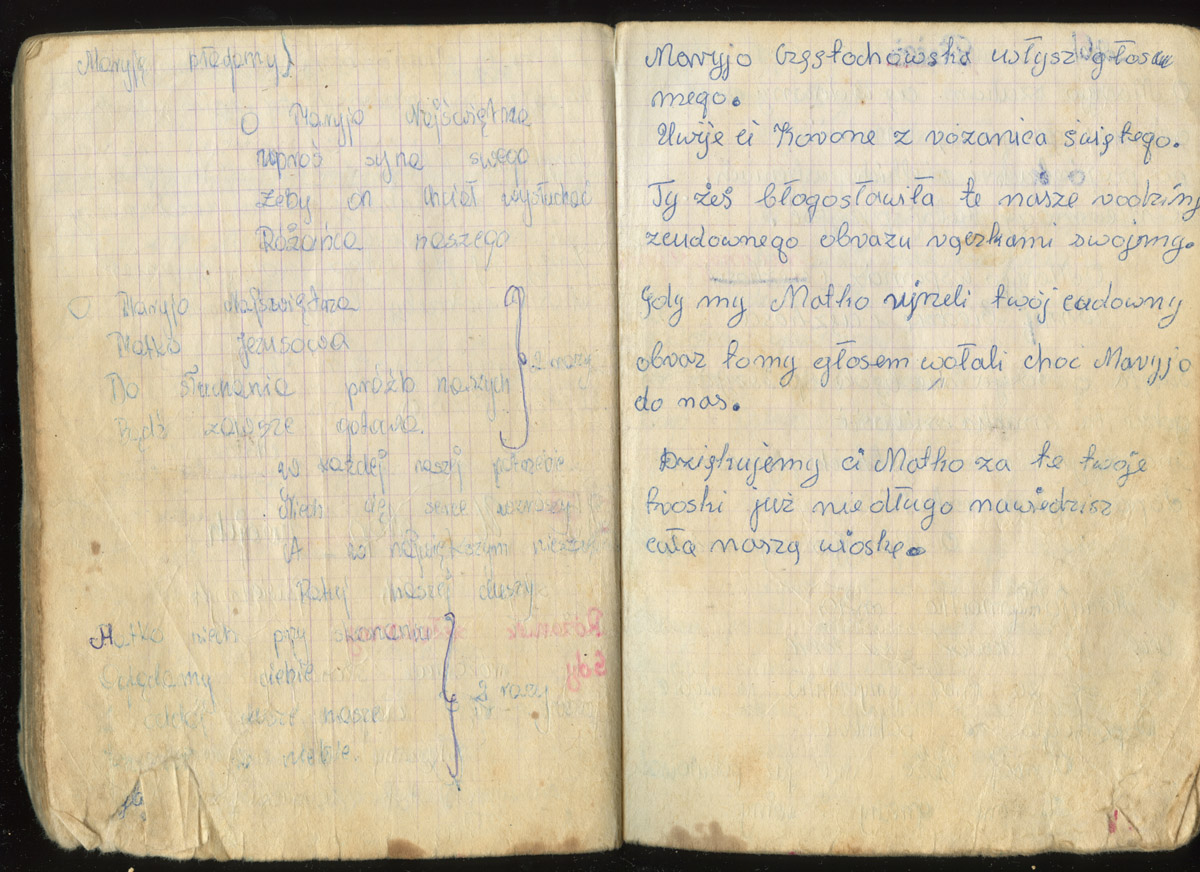 Maryję błagamy
O Maryjo Najświętrza
uproś syna swego
żeby on chciał wysłuchać
Różańca naszego
O Maryjo Najświętrza
Matko Jezusowa
Do słuchania próźb naszych
Bądź zawsze gotowa.
2 razy
w każdej naszej potrzebie
Niech się serce wzruszy
A w największym
Ratuj naszej duszy
Matko niech przy skonaniu
ciebie
nasze
niebie
2 razy
Różaniec
Gdy
Maryjo Częstochowska usłysz głosu
mego.
Uwije ci Korone z rozanica świętego.
Ty żeś błogosławiła te nasze rodziny
zcudownego obrazu rączkami swojimy.
Gdy my Matko ujrzeli twój cudowny
obraz tomy głosem wołali choc Maryjo
do nas.
Dziękujemy ci Matko za te twoje
troski już niedługo nawiedzisz
całą naszą wioskę.